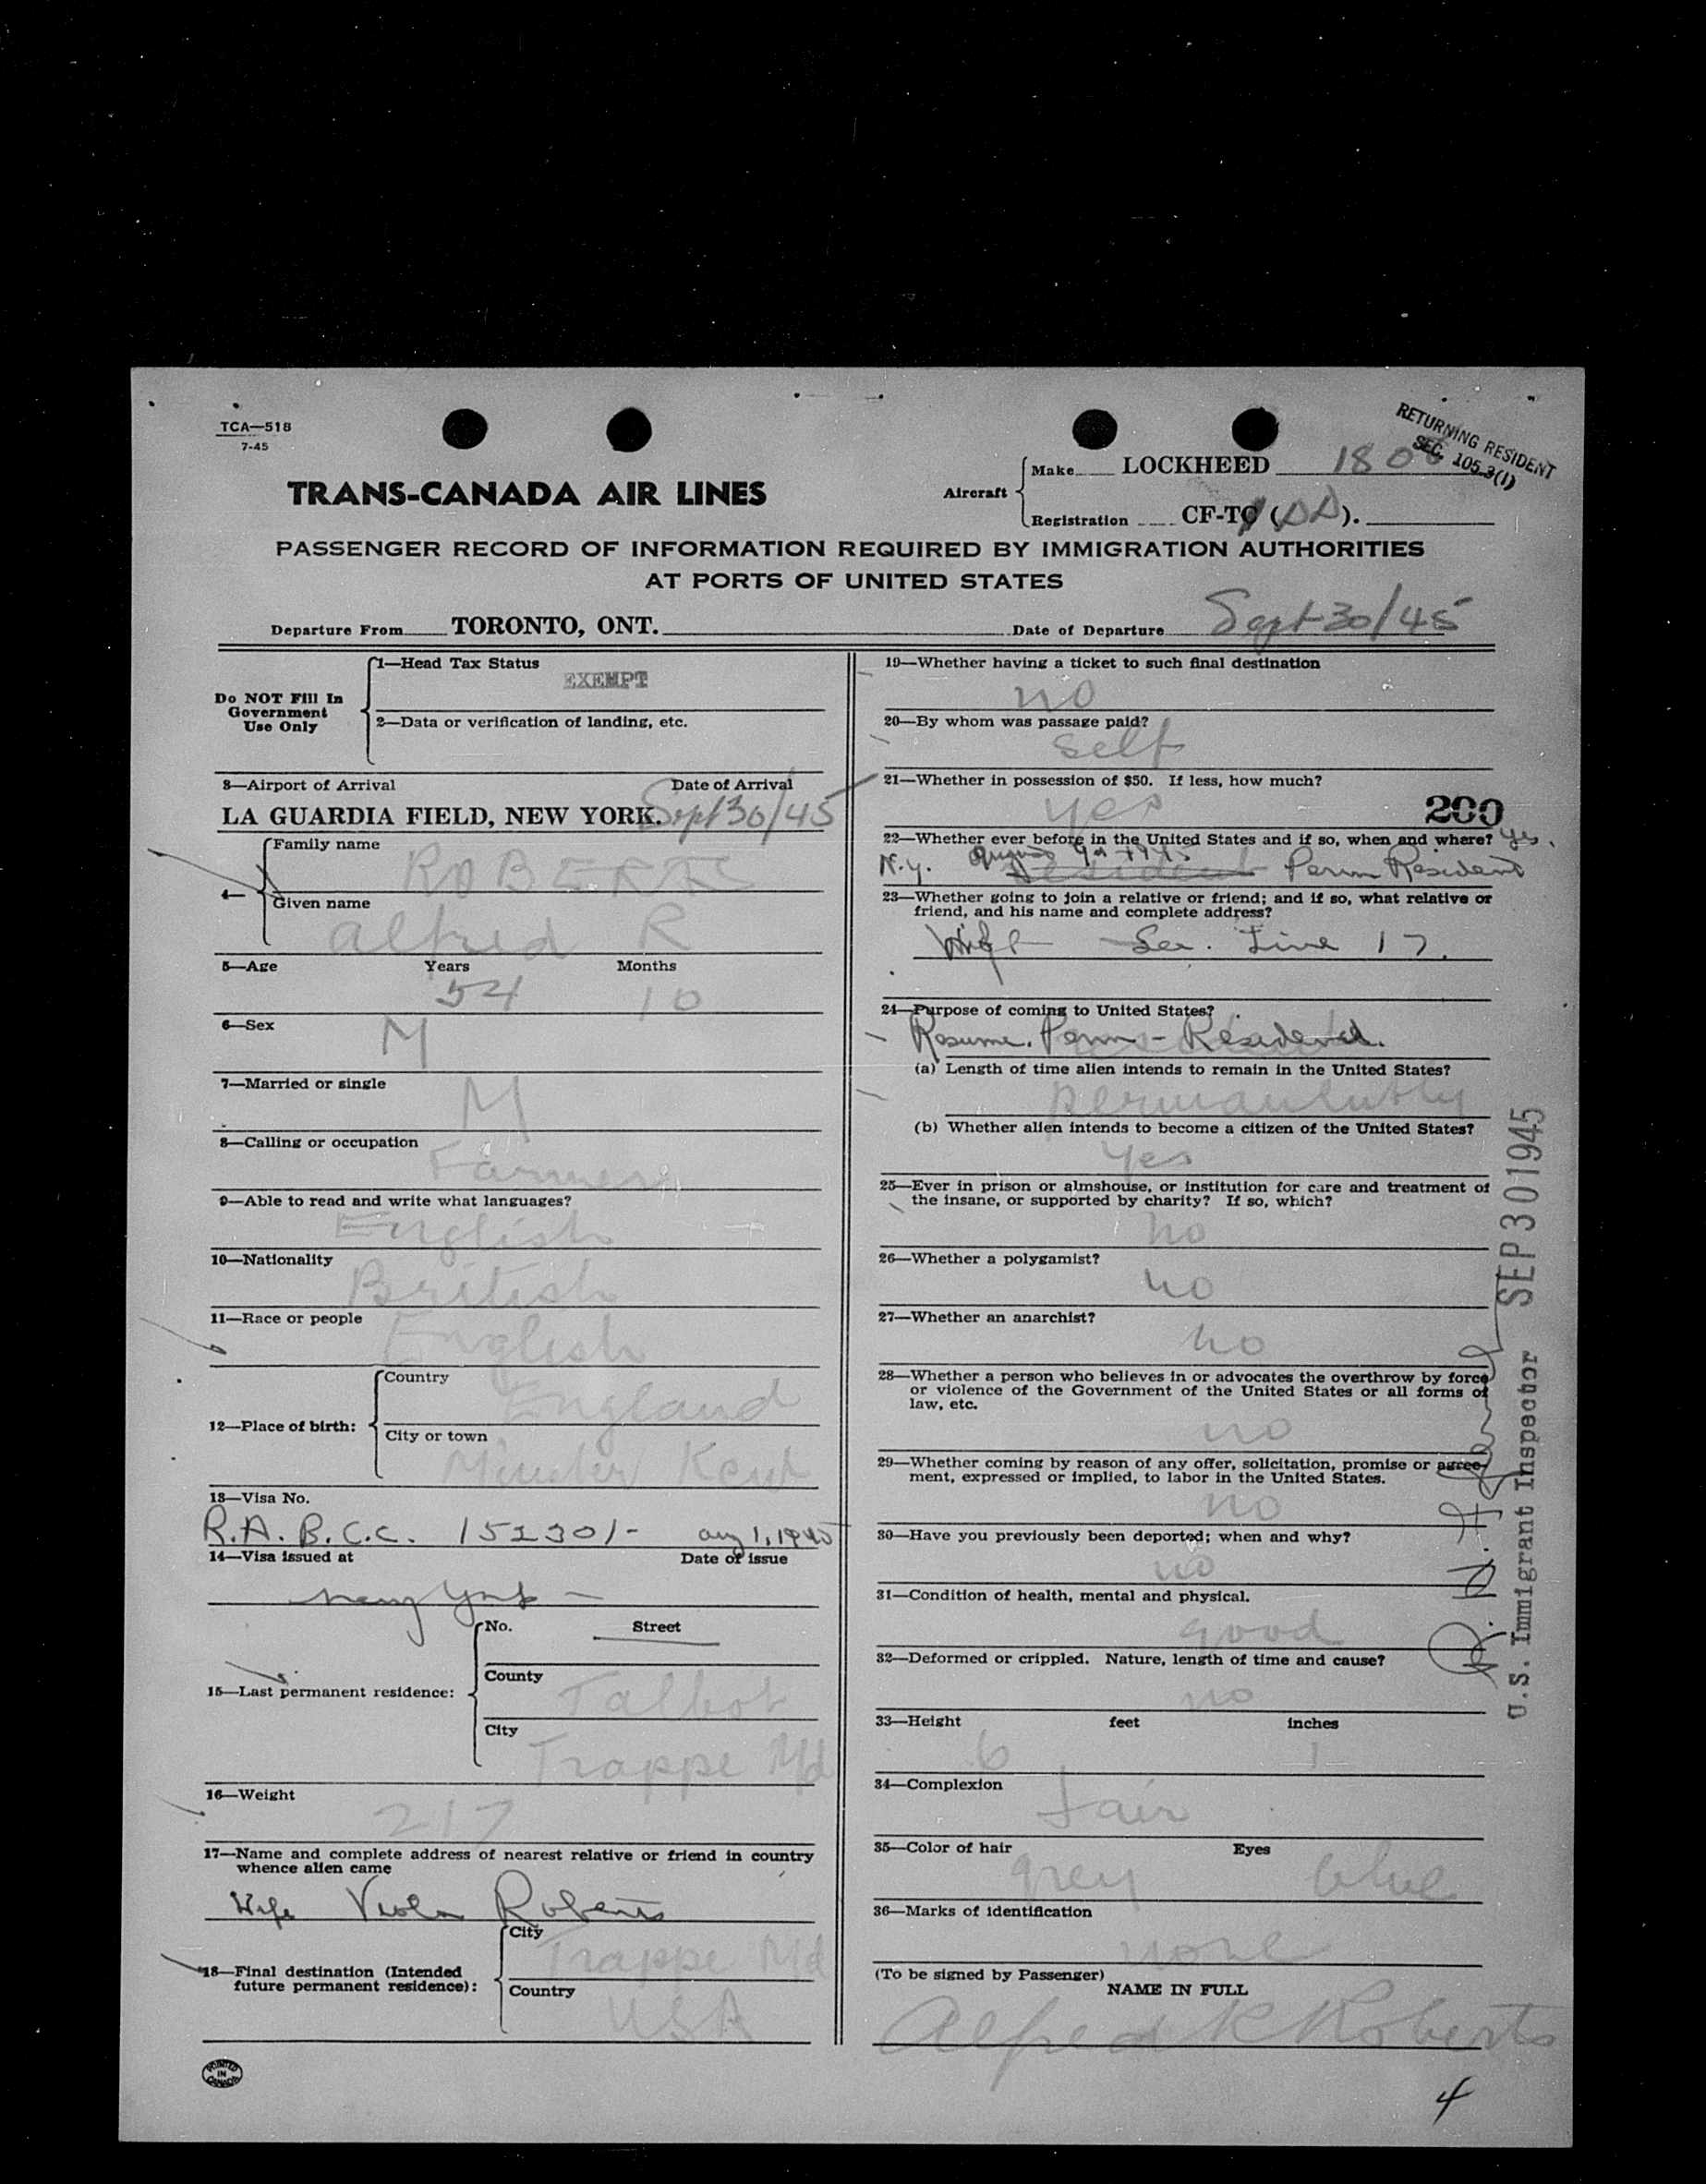 TCA—518
7-45
RETURNING RESIDENT
SEC. 105.3(1)
TRANS-CANADA AIR LINES
Aircraft
Make LOCKHEED 1808
Registration CF-TC (DD).
PASSENGER RECORD OF INFORMATION REQUIRED BY IMMIGRATION AUTHORITIES
AT PORTS OF UNITED STATES
Departure From TORONTO, ONT. Date of Departure Sept 30/45
Do NOT Fill In
Government
Use Only
1—Head Tax Status
EXEMPT
2—Data or verification of landing, etc.
3—Airport of Arrival Date of Arrival
LA GUARDIA FIELD, NEW YORK. Sept 30/45
4—
Family name
ROBERTS
Given name
Alfred R
5—Age Years Months
54 10
6—Sex
M
7—Married or single
M
8—Calling or occupation
Farmer
9—Able to read and write what languages?
English
10—Nationality
British
11—Race or people
English
12—Place of birth:
Country
England
City or town
Minster Kent
13—Visa No.
R.A. B.C.C. 152301- Aug 1, 1945
14—Visa issued at Date of issue
New York —
15—Last permanent residence:
No. Street
County
Talbot
City
Trappe Md
16—Weight
217
17—Name and complete address of nearest relative or friend in country
whence alien came
Wife Viola Roberts
18—Final destination (Intended
future permanent residence):
City
Trappe Md
Country
USA
PRINTED
IN
CANADA
19—Whether having a ticket to such final destination
no
20—By whom was passage paid?
self
21—Whether in possession of $50. If less, how much?
yes 200
22—Whether ever before in the United States and if so, when and where? yes.
N.Y. 1945 resident Perm Resident
23—Whether going to join a relative or friend; and if so, what relative or
friend, and his name and complete address?
Wife — See. Line 17.
24—Purpose of coming to United States?
Resume. Perm - Residence.
(a) Length of time alien intends to remain in the United States?
permanently
(b) Whether alien intends to become a citizen of the United States?
yes
25—Ever in prison or almshouse, or institution for care and treatment of
the insane, or supported by charity? If so, which?
no
26—Whether a polygamist?
no
27—Whether an anarchist?
no
28—Whether a person who believes in or advocates the overthrow by force
or violence of the Government of the United States or all forms of
law, etc.
no
29—Whether coming by reason of any offer, solicitation, promise or agree-
ment, expressed or implied, to labor in the United States.
no
30—Have you previously been deported; when and why?
no
31—Condition of health, mental and physical.
good
32—Deformed or crippled. Nature, length of time and cause?
no
33—Height feet inches
6 1
34—Complexion
fair
35—Color of hair Eyes
grey blue
36—Marks of identification
none
(To be signed by Passenger)
NAME IN FULL
Alfred R Roberts
4
U.S. Immigrant Inspector SEP 30 1945